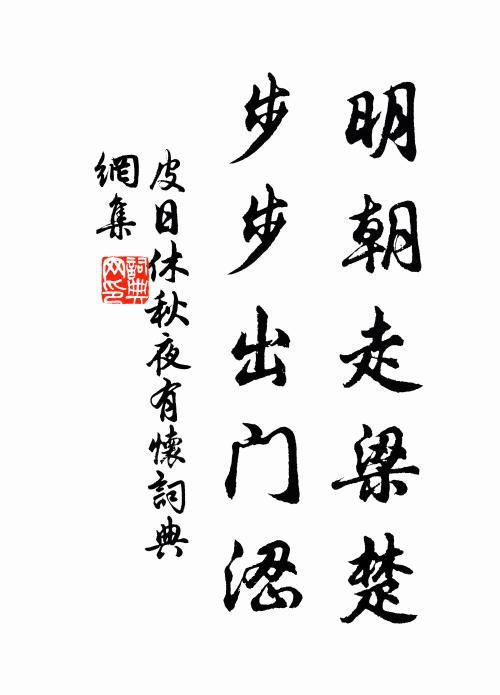 明朝走梁楚
步步出门涩
皮日休秋夜有懷詞典
網集
詞典
网印